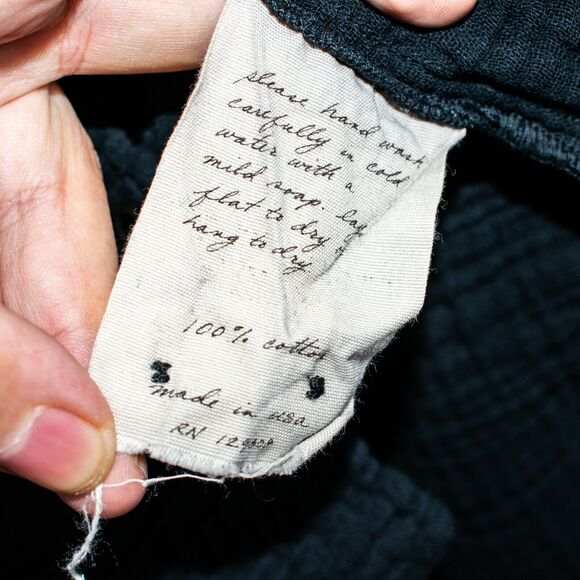 please hand wash
carefully in cold
water with a
mild soap. lay
flat to dry
hang to dry.
100% cotton
made in usa
RN